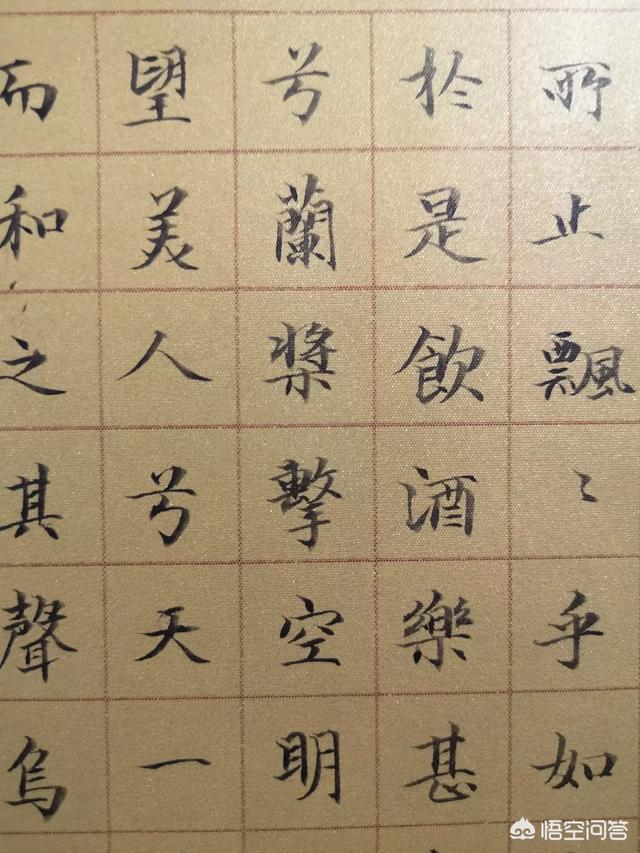 所止飄〻乎如
於是飲酒樂甚
兮蘭槳擊空明
望美人兮天一
而和之其聲烏
悟空问答